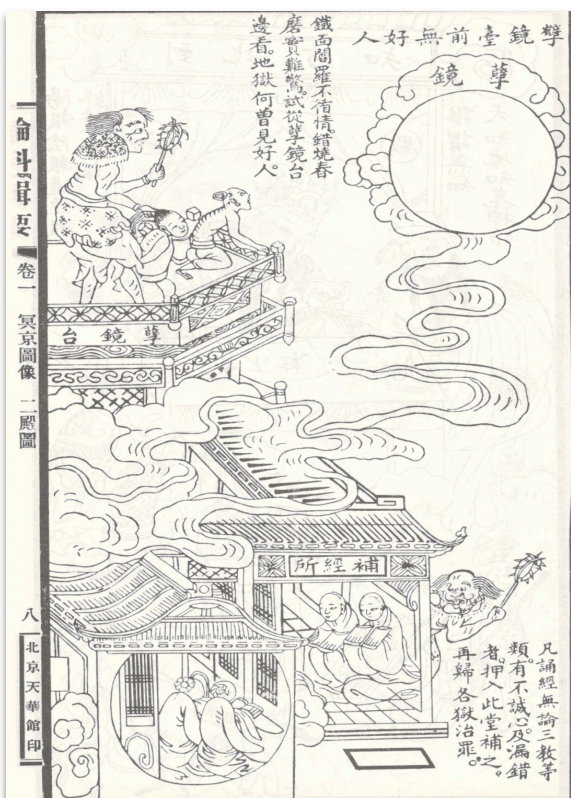 孽鏡臺前無好人
孽鏡
鐵面閻羅不循情。錯燒春
磨實難驚。試從孽鏡台
邊看。地獄何曾見好人。
孽鏡台
補經所
凡誦經無論三教等
類。有不誠心。及漏錯
者。押入此堂補之。
再歸各獄治罪。
科輯要
卷一 冥京圖像 二殿圖
八
北京天華館印